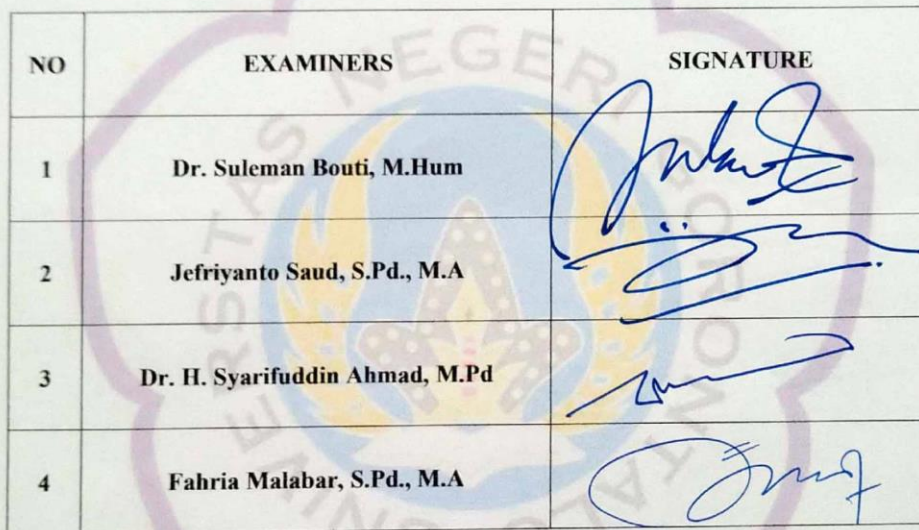 NO EXAMINERS SIGNATURE
1 Dr. Suleman Bouti, M.Hum
2 Jefriyanto Saud, S.Pd., M.A
3 Dr. H. Syarifuddin Ahmad, M.Pd
4 Fahria Malabar, S.Pd., M.A
RSTAS NEGERI GORONTALO